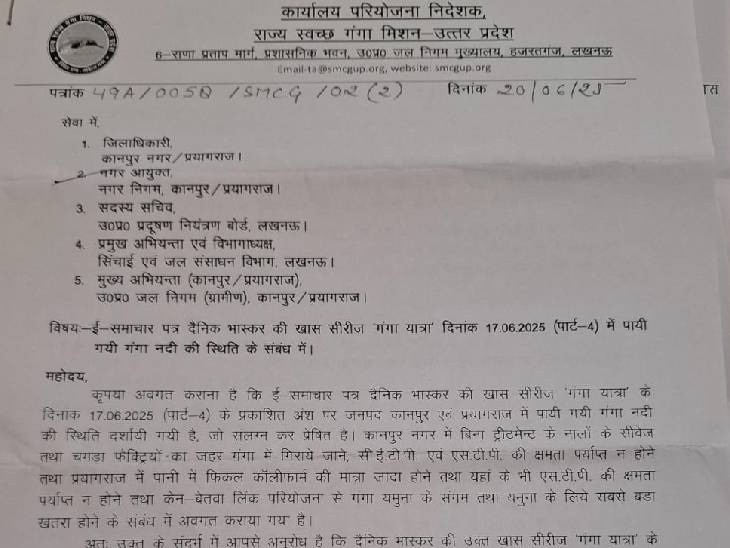 कार्यालय परियोजना निदेशक,
राज्य स्वच्छ गंगा मिशन–उत्तर प्रदेश
6–राणा प्रताप मार्ग, प्रशासनिक भवन, उ0प्र0 जल निगम मुख्यालय, हजरतगंज, लखनऊ
Email-ta@smcgup.org, website: smcgup.org
पत्रांक 49A/005Q /SMCG/02(2) दिनांक 20/06/25
सेवा में,
1. जिलाधिकारी,
कानपुर नगर/प्रयागराज।
2. नगर आयुक्त,
नगर निगम, कानपुर/प्रयागराज।
3. सदस्य सचिव,
उ0प्र0 प्रदूषण नियंत्रण बोर्ड, लखनऊ।
4. प्रमुख अभियन्ता एवं विभागाध्यक्ष,
सिंचाई एवं जल संसाधन विभाग, लखनऊ।
5. मुख्य अभियन्ता (कानपुर/प्रयागराज),
उ0प्र0 जल निगम (ग्रामीण), कानपुर/प्रयागराज।
विषयः–ई–समाचार पत्र दैनिक भास्कर की खास सीरीज 'गंगा यात्रा' दिनांक 17.06.2025 (पार्ट–4) में पायी
गयी गंगा नदी की स्थिति के संबंध में।
महोदय,
कृपया अवगत कराना है कि ई समाचार पत्र दैनिक भास्कर की खास सीरीज 'गंगा यात्रा' के
दिनांक 17.06.2025 (पार्ट–4) के प्रकाशित अंश पर जनपद कानपुर एवं प्रयागराज में पायी गयी गंगा नदी
की स्थिति दर्शायी गयी है, जो संलग्न कर प्रेषित है। कानपुर नगर में बिना ट्रीटमेन्ट के नालों के सीवेज
तथा चमड़ा फैक्ट्रियों का जहर गंगा में गिराये जाने, सी.ई.टी.पी. एवं एस.टी.पी. की क्षमता पर्याप्त न होने
तथा प्रयागराज में पानी में फिकल कॉलीफार्म की मात्रा जादा होने तथा यहां के भी एस.टी.पी. की क्षमता
पर्याप्त न होने तथा केन–बेतवा लिंक परियोजना से गंगा यमुना के संगम तथा यमुना के लिये सबसे बडा
खतरा होने के संबंध में अवगत कराया गया है।
अतः उक्त के संदर्भ में आपसे अनुरोध है कि दैनिक भास्कर की उक्त खास सीरीज 'गंगा यात्रा' के